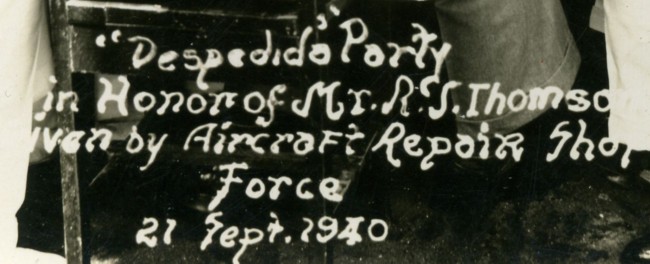 "Despedida" Party
in Honor of Mr. R.S. Thomso
iven by Aircraft Repair Shop
Force
21 Sept. 1940